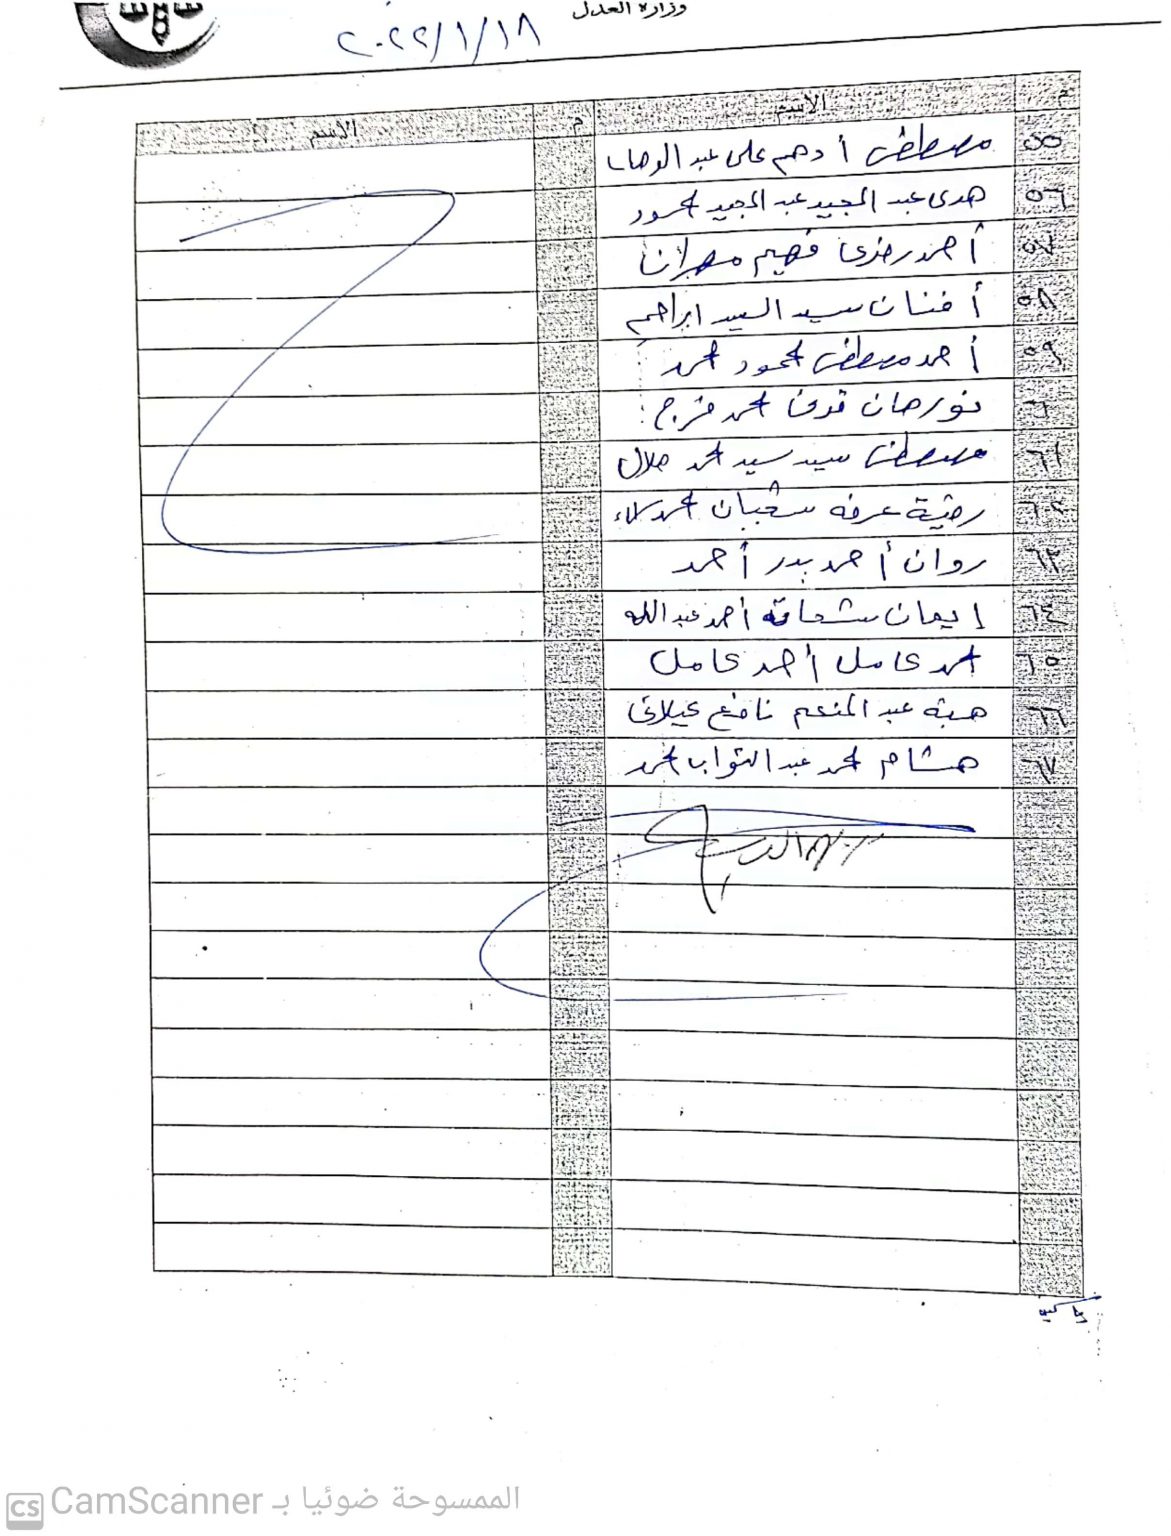 وزارة العدل
٢٠٢٢/١/١٨
م الاسم م الاسم
٥٥ مصطفى أدهم على عبد الوهاب
٥٦ هدى عبد المجيد عبد المجيد محمود
٥٧ أحمد رمزى فهيم مهران
٥٨ أفنان سيد السيد ابراهيم
٥٩ أحمد مصطفى محمود محمد
٦٠ نورهان قدرى محمد فرج
٦١ مصطفى سيد سيد محمد هلال
٦٢ رضية عرفه شعبان محمد
٦٣ روان أحمد بدر أحمد
٦٤ إيمان شحاته أحمد عبد الله
٦٥ محمد كامل أحمد كامل
٦٦ هبة عبد المنعم نافع
٦٧ هشام محمد عبد التواب محمد
CS CamScanner الممسوحة ضوئيا بـ